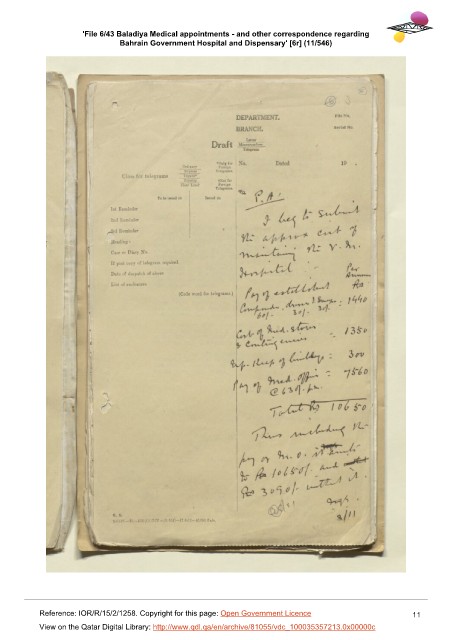 'File 6/43 Baladiya Medical appointments - and other correspondence regarding
Bahrain Government Hospital and Dispensary' [6r] (11/546)
DEPARTMENT.
BRANCH.
Draft Letter
Memorandum
Telegram
FILE No.
SERIAL No.
Class for telegrams
No. Dated 19 .
To be issued to Issued on
1st Reminder
2nd Reminder
3rd Reminder
Heading:
Case or Diary No.
If post copy of telegram required
Date of despatch of above
List of enclosures
(Code word for telegrams.)
To
P.A:
I beg to submit
the approx cost of
maintaing the V. M.
Hospital
Per
Annum
Rs
Pay of establishment
Compounder, dresser & Sweeper = 1440
60/- 30/- 30/-
Cost of Med. Stores
& Contingencies = 1350
Up-Keep of building = 300
Pay of Med. Officer = 7560
@ 630/- p.m.
Total Rs 10650
Thus including the
pay of M.O. it
to Rs 10650/- and
Rs 3090/- without it.
8/11
Reference: IOR/R/15/2/1258. Copyright for this page: Open Government Licence
View on the Qatar Digital Library: http://www.qdl.qa/en/archive/81055/vdc_100035357213.0x00000c
11